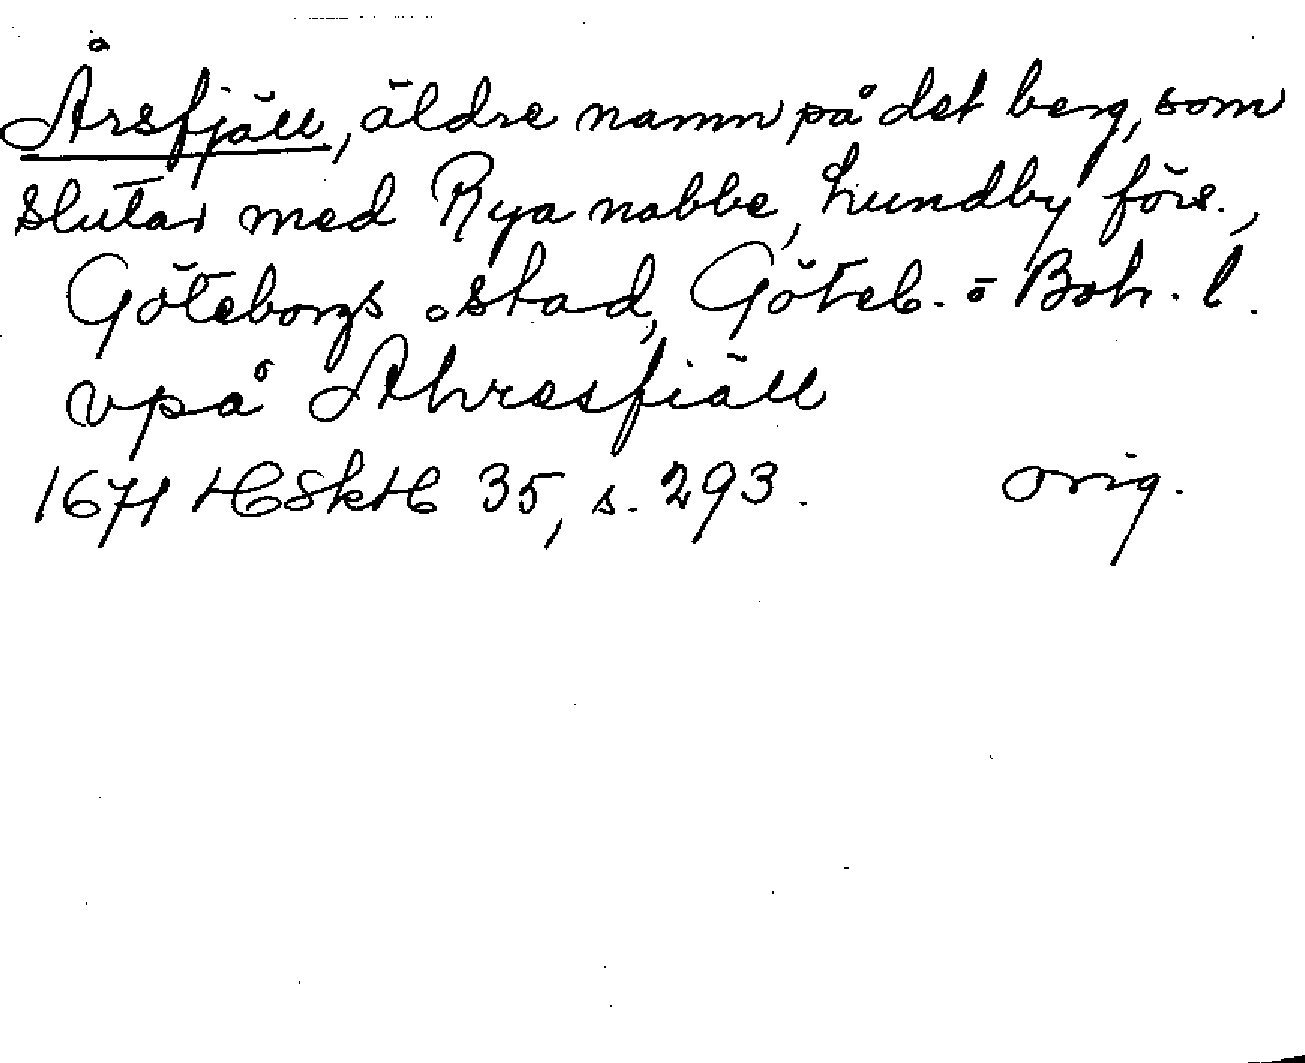 Årsfjäll, äldre namn på det berg, som
slutar med Rya nabbe, Lundby förs.,
Göteborgs stad, Göteb. o Boh. l.
vpå Ahresfiäll
1671 HSkH 35, s. 293. orig.